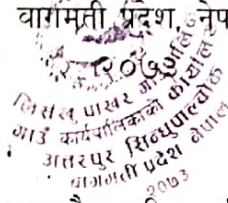 बागमती प्रदेश, नेप
२०७७
लिसंखु पाखर गाउँपालिका
गाउँ कार्यपालिकाको कार्यालय
अत्तरपुर सिन्धुपाल्चोक
बागमती प्रदेश नेपाल
२०७३